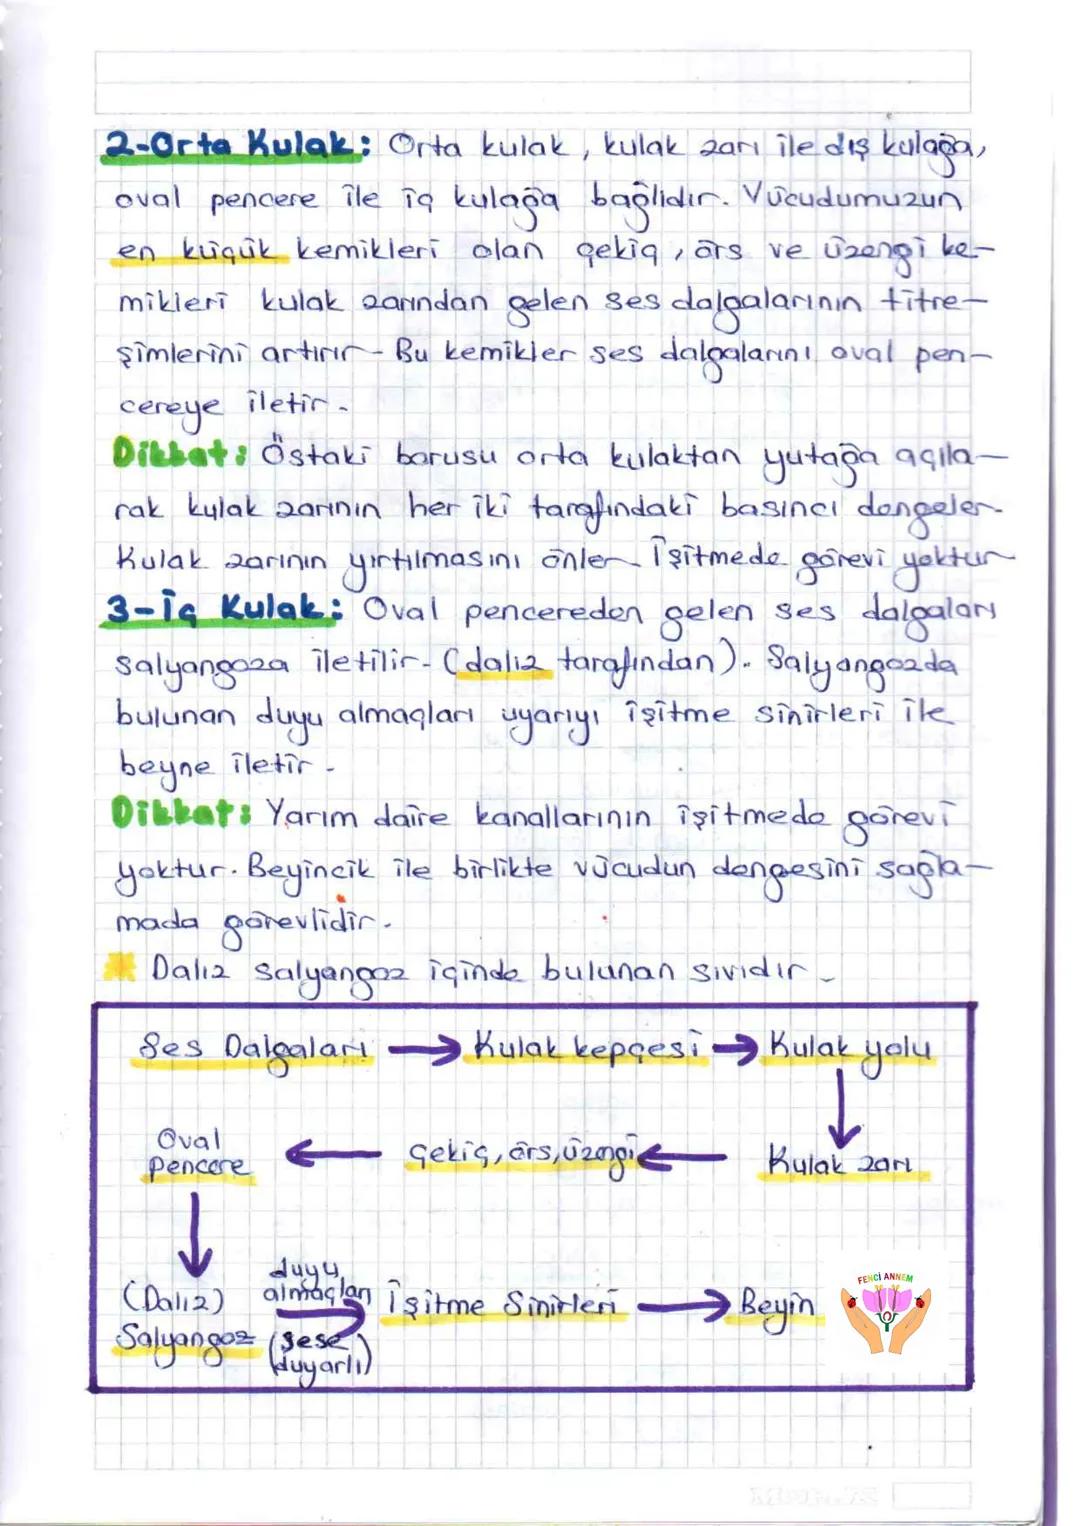 2-Orta Kulak: Orta kulak, kulak zarı ile dış kulağa,
oval pencere ile iç kulağa bağlıdır. Vücudumuzun
en küçük kemikleri olan çekiç, örs ve üzengi ke-
mikleri kulak zarından gelen ses dalgalarının titre-
şimlerini artırır. Bu kemikler ses dalgalarını oval pen-
cereye iletir.
Dikkat: Östaki borusu orta kulaktan yutağa açıla-
rak kulak zarının her iki tarafındaki basıncı dengeler.
Kulak zarının yırtılmasını önler. İşitmede görevi yoktur
3-İç Kulak: Oval pencereden gelen ses dalgaları
salyangoza iletilir. (dalız tarafından). Salyangozda
bulunan duyu almaçları uyarıyı işitme sinirleri ile
beyne iletir.
Dikkat: Yarım daire kanallarının işitmede görevi
yoktur. Beyincik ile birlikte vücudun dengesini sağla-
mada görevlidir.
Dalız salyangoz içinde bulunan sıvıdır.
Ses Dalgaları → Kulak kepçesi → Kulak yolu
Oval
pencere ← çekiç, örs, üzengi ← Kulak zarı
duyu
(Dalız) almaçları İşitme Sinirleri → Beyin
Salyangoz (sese
duyarlı)
FENCİ ANNEM